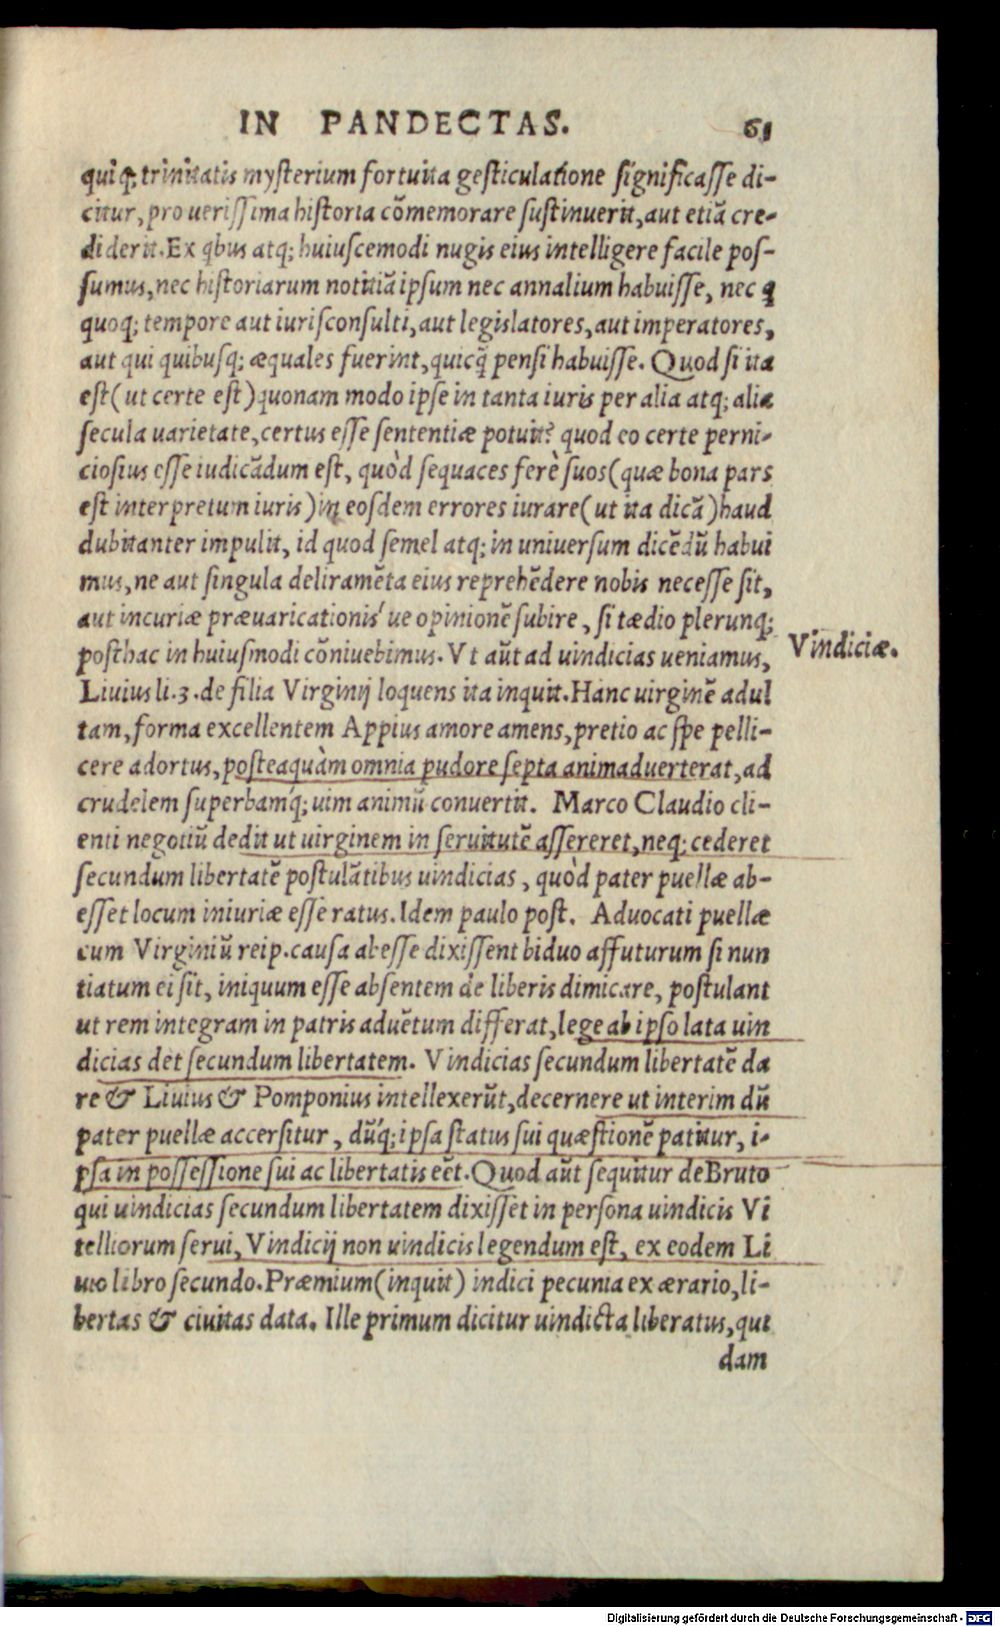 IN PANDECTAS. 61
quiq; trinitatis mysterium fortuita gesticulatione significasse di-
citur, pro uerissima historia cōmemorare sustinuerit, aut etiā cre-
diderit. Ex qbus atq; huiuscemodi nugis eius intelligere facile pos-
sumus, nec historiarum notitiā ipsum nec annalium habuisse, nec q
quoq; tempore aut iurisconsulti, aut legislatores, aut imperatores,
aut qui quibusq; æquales fuerint, quicq̃ pensi habuisse. Quod si ita
est (ut certe est) quonam modo ipse in tanta iuris per alia atq; alia
secula uarietate, certus esse sententiæ potuit? quod eo certe perni-
ciosius esse iudicādum est, quòd sequaces ferè suos (quæ bona pars
est interpretum iuris) in eosdem errores iurare (ut ita dicā) haud
dubitanter impulit, id quod semel atq; in uniuersum dicēdū habui
mus, ne aut singula deliramēta eius reprehēdere nobis necesse sit,
aut incuriæ præuaricationis'ue opinionē subire, si tædio plerunq;
posthac in huiusmodi cōniuebimus. Vt aūt ad uindicias ueniamus,
Vindiciæ.
Liuius li.3. de filia Virginij loquens ita inquit. Hanc uirginē adul
tam, forma excellentem Appius amore amens, pretio ac spe pelli-
cere adortus, posteaquàm omnia pudore septa animaduerterat, ad
crudelem superbamq́; uim animū conuertit. Marco Claudio cli-
enti negotiū dedit ut uirginem in seruitutē assereret, neq; cederet
secundum libertatē postulātibus uindicias, quòd pater puellæ ab-
esset locum iniuriæ esse ratus. Idem paulo post. Aduocati puellæ
cum Virginiū reip. causa abesse dixissent biduo affuturum si nun
tiatum ei sit, iniquum esse absentem de liberis dimicare, postulant
ut rem integram in patris aduētum differat, lege ab ipso lata uin
dicias det secundum libertatem. Vindicias secundum libertatē da
re & Liuius & Pomponius intellexerūt, decernere ut interim dū
pater puellæ accersitur, dūq́; ipsa status sui quæstionē patitur, i-
psa in possessione sui ac libertatis eēt. Quod aūt sequitur de Bruto
qui uindicias secundum libertatem dixisset in persona uindicis Vi
telliorum serui, Vindicij non uindicis legendum est, ex eodem Li
uio libro secundo. Præmium (inquit) indici pecunia ex ærario, li-
bertas & ciuitas data. Ille primum dicitur uindicta liberatus, qui
dam
Digitalisierung gefördert durch die Deutsche Forschungsgemeinschaft - DFG